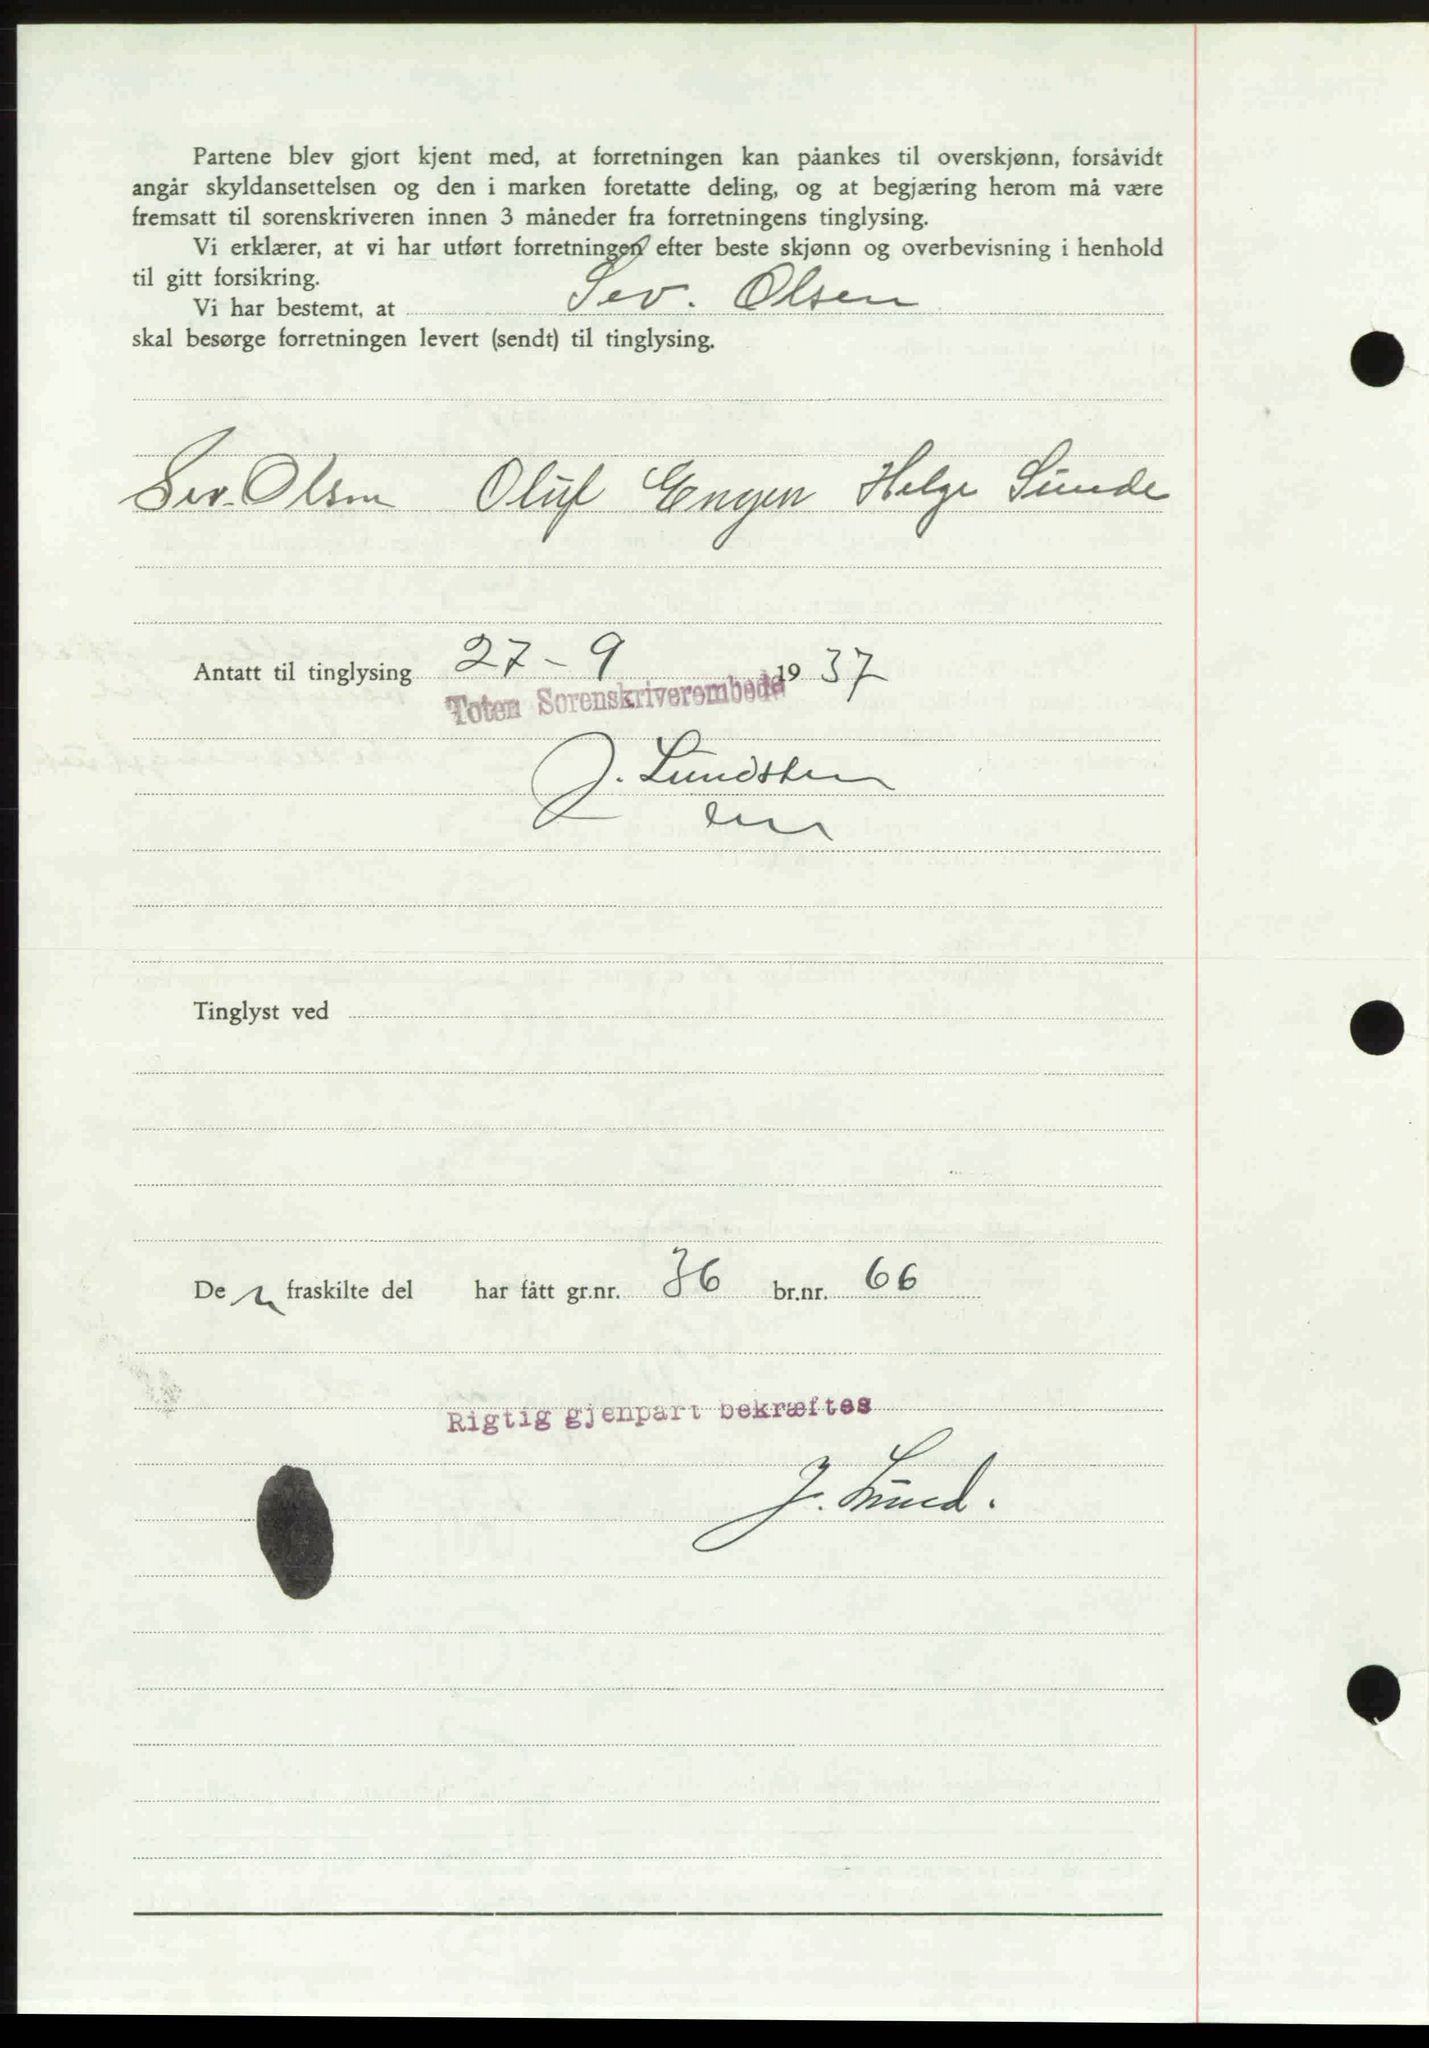 Partene blev gjort kjent med, at forretningen kan påankes til overskjønn, forsåvidt
angår skyldansettelsen og den i marken foretatte deling, og at begjæring herom må være
fremsatt til sorenskriveren innen 3 måneder fra forretningens tinglysing.
Vi erklærer, at vi har utført forretningen efter beste skjønn og overbevisning i henhold
til gitt forsikring.
Vi har bestemt, at Sev. Olsen
skal besørge forretningen levert (sendt) til tinglysing.
Sev. Olsen Oluf Engen Helge Sunde
Antatt til tinglysing 27-9 1937
Toten Sorenskriverembede
J. Lundsten
Tinglyst ved
De n fraskilte del har fått gr.nr. 36 br.nr. 66
Rigtig gjenpart bekræftes
J. Lund.